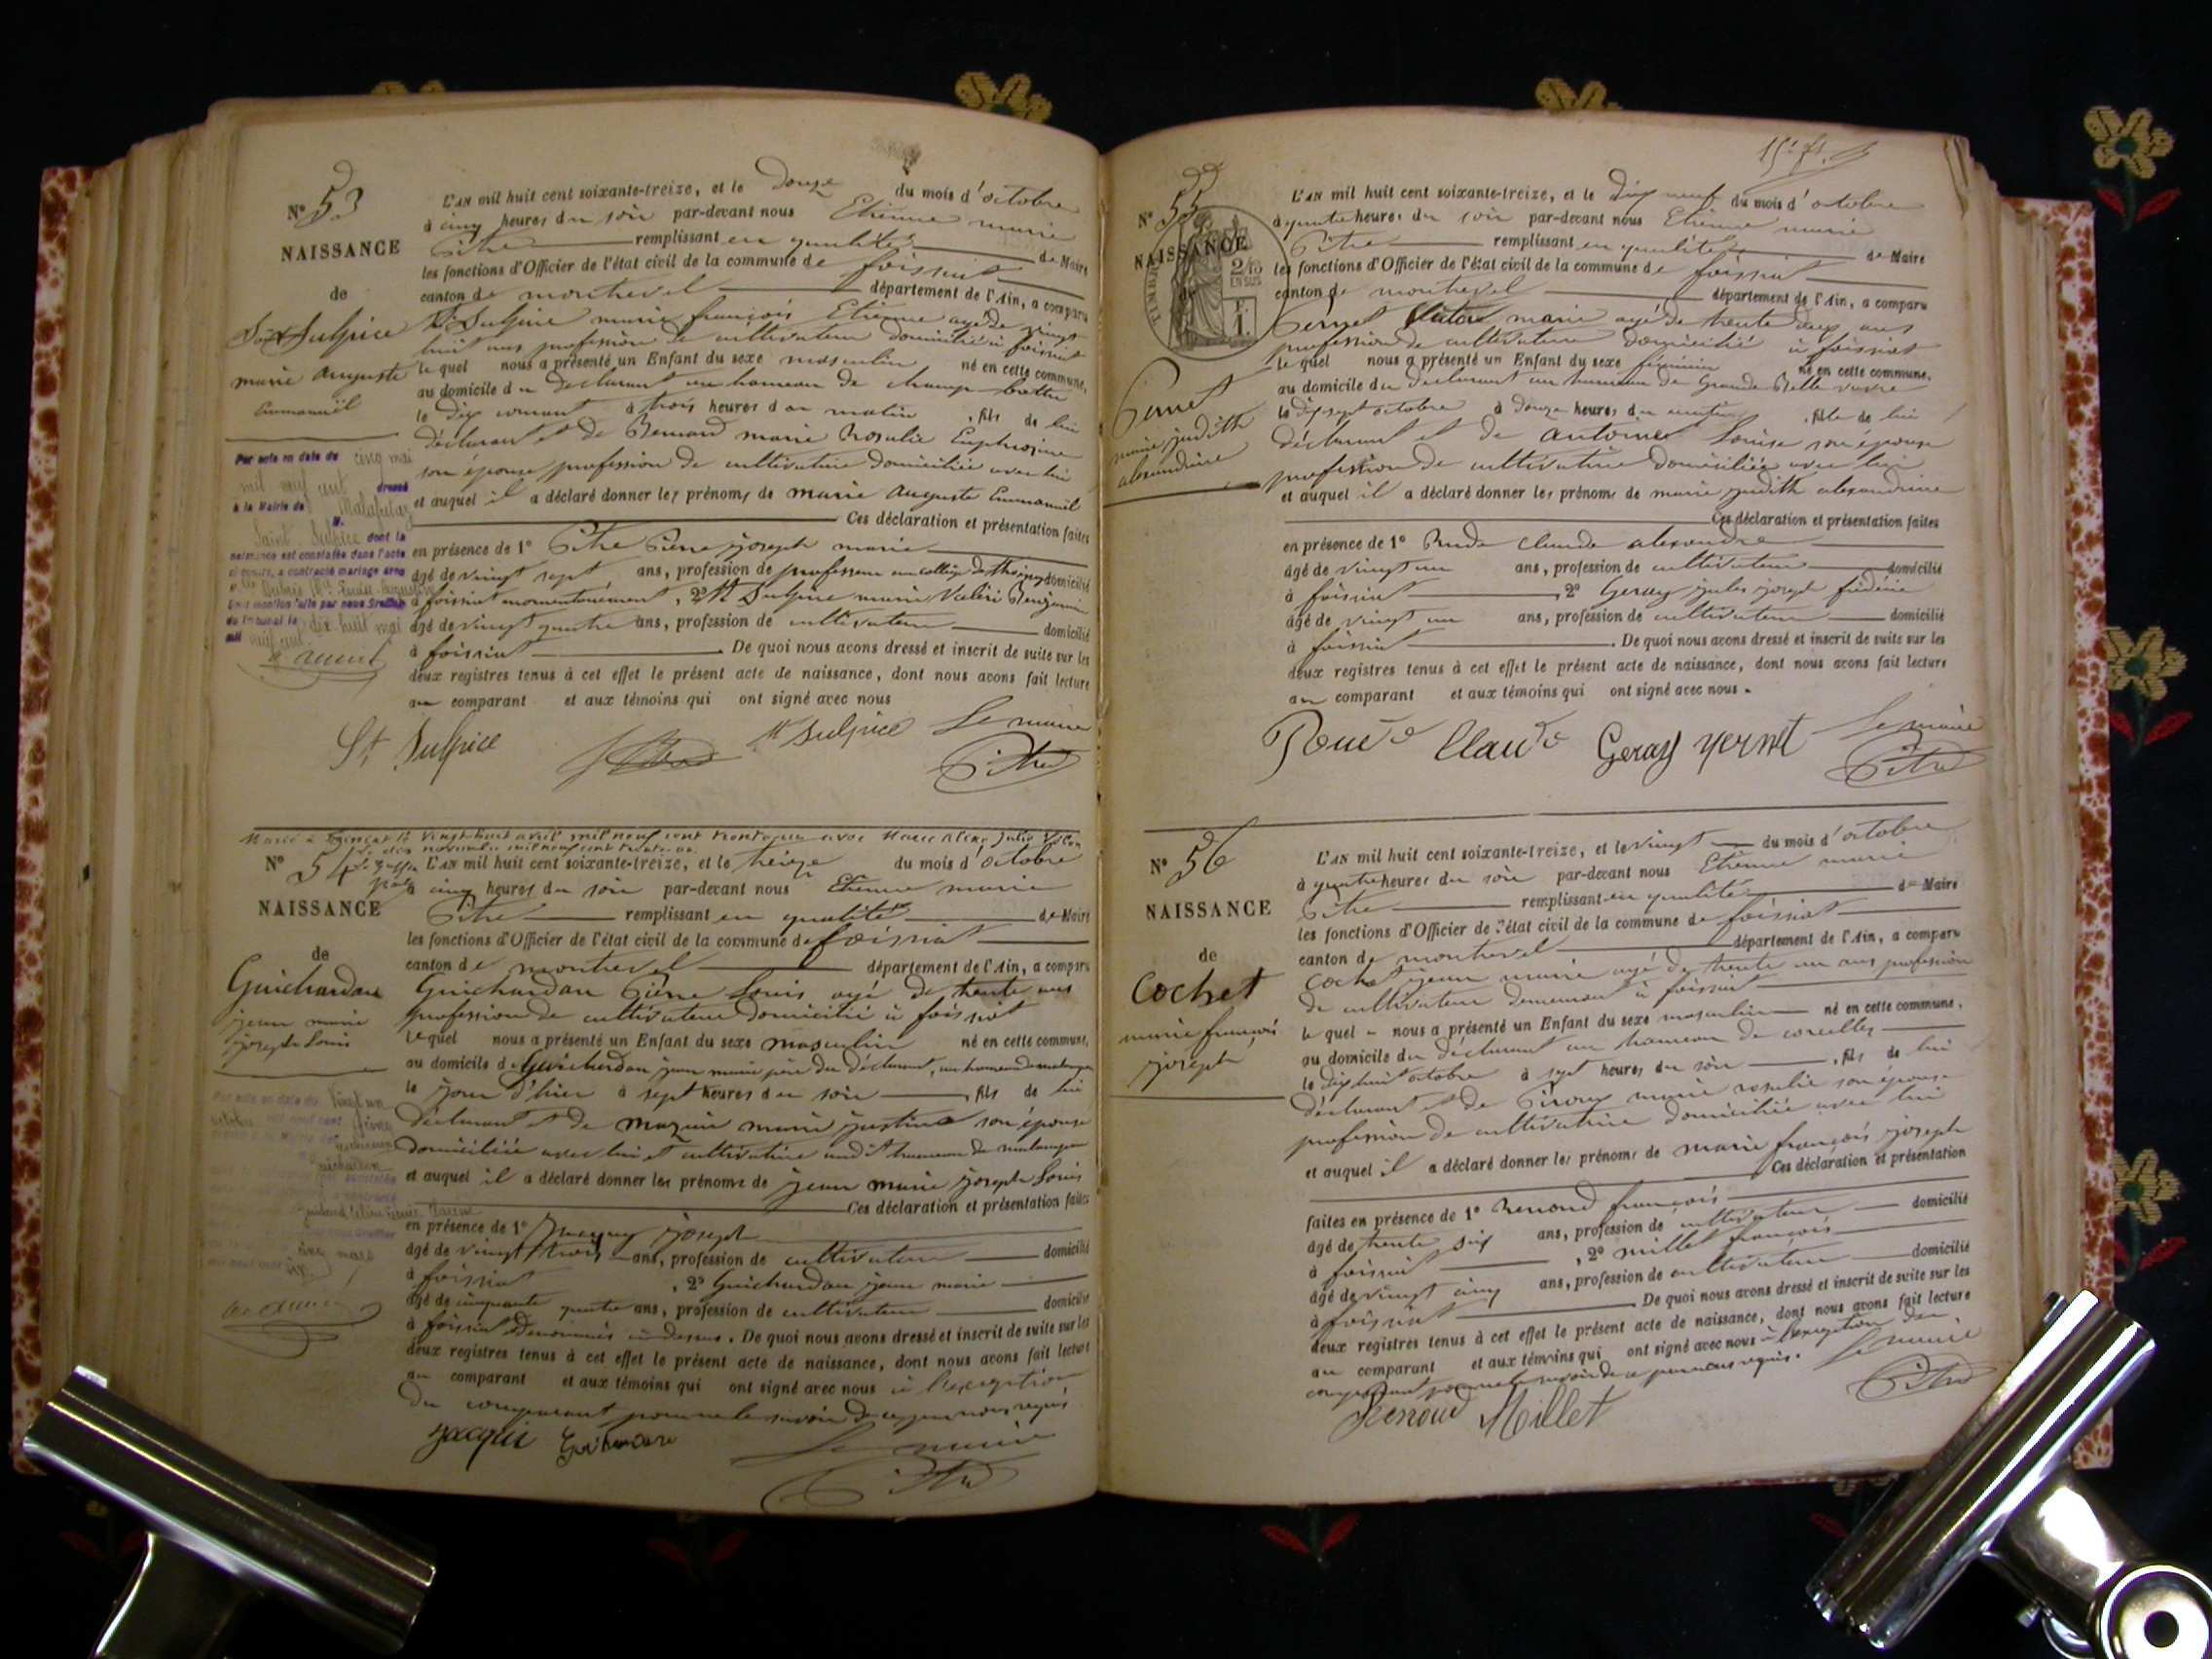 N° 53
NAISSANCE
de
Saint Sulpice
marie Auguste
Emmanuël
Par acte en date du cinq mai
mil neuf cent dressé
à la Mairie de Malafretaz
Saint Sulpice dont la
naissance est constatée dans l'acte
ci-contre, a contracté mariage avec
du Tribunal le dix huit mai
mil neuf cent
L'AN mil huit cent soixante-treize, et le Douze du mois d'octobre
à cinq heures du soir par-devant nous Etienne marie
Pitre remplissant en qualité de Maire
les fonctions d'Officier de l'état civil de la commune de foissiat
canton de montrevel département de l'Ain, a comparu
St Sulpice marie françois Etienne agé de vingt
huit ans profession de cultivateur domicilié à foissiat
le quel nous a présenté un Enfant du sexe masculin né en cette commune,
au domicile du declarant au hameau de
le dix courant à trois heures du matin, fils de lui
déclarant et de Bernard marie Rosalie Euphrosine
son épouse profession de cultivatrice domiciliée avec lui
et auquel il a déclaré donner les prénoms de marie Auguste Emmanuël
Ces déclaration et présentation faites
en présence de 1° Pitre Pierre joseph marie
âgé de vingt sept ans, profession de professeur au collège de Thoissey domicilié
à foissiat momentanément, 2° St Sulpice marie Valéri Benjamin
âgé de vingt quatre ans, profession de cultivateur domicilié
à foissiat. De quoi nous avons dressé et inscrit de suite sur les
deux registres tenus à cet effet le présent acte de naissance, dont nous avons fait lecture
au comparant et aux témoins qui ont signé avec nous
St Sulpice St Sulpice Le maire
Pitre
Marié à le vingt-huit avril mil neuf cent avec Marie
N° 54
NAISSANCE
de
Guichardan
jean marie
joseph Louis
L'AN mil huit cent soixante-treize, et le treize du mois d'octobre
à cinq heures du soir par-devant nous Etienne marie
Pitre remplissant en qualité de Maire
les fonctions d'Officier de l'état civil de la commune de foissiat
canton de montrevel département de l'Ain, a comparu
Guichardan Pierre Louis agé de trente ans
profession de cultivateur domicilié à foissiat
le quel nous a présenté un Enfant du sexe masculin né en cette commune,
au domicile de Guichardan jean marie père du déclarant, au hameau de
le jour d'hier à sept heures du soir, fils de lui
déclarant et de mazuir marie justine son épouse
domiciliée avec lui et cultivatrice audit hameau de
et auquel il a déclaré donner les prénoms de jean marie joseph Louis
Ces déclaration et présentation faites
en présence de 1° joseph
âgé de vingt trois ans, profession de cultivateur domicilié
à foissiat, 2° Guichardan jean marie
âgé de cinquante quatre ans, profession de cultivateur domicilié
à foissiat dénommés ci-dessus. De quoi nous avons dressé et inscrit de suite sur les
deux registres tenus à cet effet le présent acte de naissance, dont nous avons fait lecture
au comparant et aux témoins qui ont signé avec nous à l'exception
du comparant pour ne le savoir de ce par nous requis
Le maire
Pitre
N° 55
NAISSANCE
de
TIMBRE
2/10
EN SUS
F.
1.
Pernet
marie judith
alexandrine
L'AN mil huit cent soixante-treize, et le Dix neuf du mois d'octobre
à quatre heures du soir par-devant nous Etienne marie
Pitre remplissant en qualité de Maire
les fonctions d'Officier de l'état civil de la commune de foissiat
canton de montrevel département de l'Ain, a comparu
Pernet marie agé de trente deux ans
profession de cultivateur domicilié à foissiat
le quel nous a présenté un Enfant du sexe féminin né en cette commune,
au domicile du déclarant au hameau de Grande
le dix sept octobre à Douze heures du matin, fille de lui
déclarant et de antoinet Louise son épouse
profession de cultivatrice domiciliée avec lui
et auquel il a déclaré donner les prénoms de marie judith alexandrine
Ces déclaration et présentation faites
en présence de 1° Rude claude alexandre
âgé de vingt un ans, profession de cultivateur domicilié
à foissiat, 2° Geray jules joseph frédéric
âgé de vingt un ans, profession de cultivateur domicilié
à foissiat. De quoi nous avons dressé et inscrit de suite sur les
deux registres tenus à cet effet le présent acte de naissance, dont nous avons fait lecture
au comparant et aux témoins qui ont signé avec nous.
Claude Geray Pernet Le maire
Pitre
N° 56
NAISSANCE
de
Cochet
marie françois
joseph
L'AN mil huit cent soixante-treize, et le vingt du mois d'octobre
à quatre heures du soir par-devant nous Etienne marie
Pitre remplissant en qualité de Maire
les fonctions d'Officier de l'état civil de la commune de foissiat
canton de montrevel département de l'Ain, a comparu
Cochet jean marie agé de trente un ans profession
de cultivateur demeurant à foissiat
le quel nous a présenté un Enfant du sexe masculin né en cette commune,
au domicile du déclarant au hameau de corcelles
le dix huit octobre à sept heures du soir, fils de lui
déclarant et de Piroux marie rosalie son épouse
profession de cultivatrice domiciliée avec lui
et auquel il a déclaré donner les prénoms de marie françois joseph
Ces déclaration et présentation
faites en présence de 1° Renoud françois
âgé de trente six ans, profession de cultivateur domicilié
à foissiat, 2° millet françois
âgé de vingt cinq ans, profession de cultivateur domicilié
à foissiat. De quoi nous avons dressé et inscrit de suite sur les
deux registres tenus à cet effet le présent acte de naissance, dont nous avons fait lecture
au comparant et aux témoins qui ont signé avec nous à l'exception du
comparant pour ne le savoir de ce par nous requis. Le maire
Renoud Millet Pitre